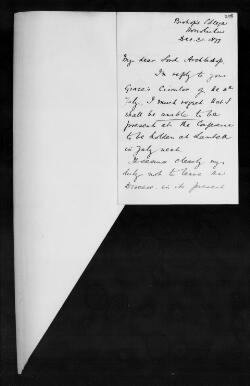 Bishop's College
Honolulu
Dec. 3. 1877
My dear Lord Archbishop.
In reply to your
Grace's Circular of the 10th
July. I much regret that I
shall be unable to be
present at the Conference
to be holden at Lambeth
in July next.
It seems clearly my
duty not to leave the
Diocese. in its present